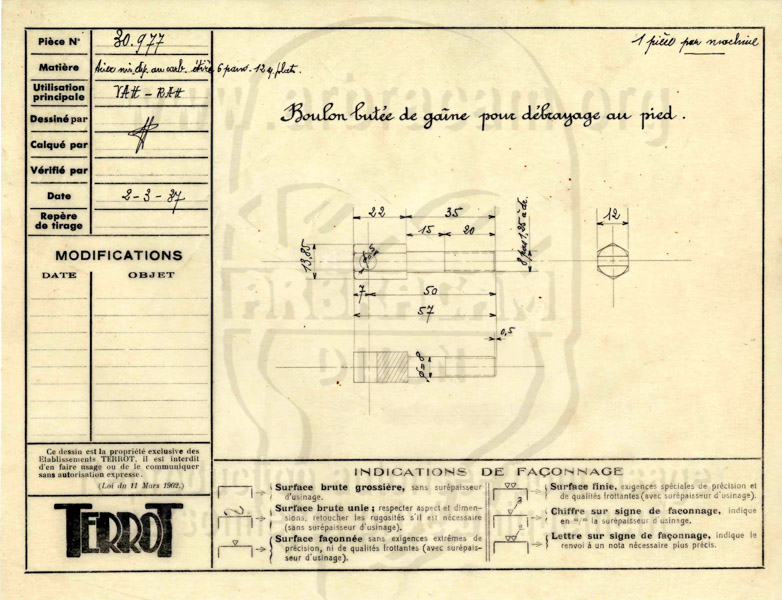 Pièce N° 30.977
1 pièce par machine
Matière Acier mi. dp. au carb. étiré 6 pans. 12 s. plats.
Utilisation principale VAH - RAH
Boulon butée de gaîne pour débrayage au pied.
Dessiné par
Calqué par
Vérifié par
Date 2-3-37
Repère de tirage
MODIFICATIONS
DATE OBJET
22 35 12
15 20
13,85
8 pas 1,25 à dr.
7 50
57
0,5
Ce dessin est la propriété exclusive des
Etablissements TERROT, il est interdit
d'en faire usage ou de le communiquer
sans autorisation expresse.
(Loi du 11 Mars 1902.)
TERROT
INDICATIONS DE FAÇONNAGE
Surface brute grossière, sans surépaisseur
d'usinage.
Surface brute unie ; respecter aspect et dimen-
sions, retoucher les rugosités s'il est nécessaire
(sans surépaisseur d'usinage).
Surface façonnée sans exigences extrêmes de
précision, ni de qualités frottantes (avec surépais-
seur d'usinage).
Surface finie, exigences spéciales de précision et
de qualités frottantes (avec surépaisseur d'usinage).
3
Chiffre sur signe de faconnage, indique
en m/m la surépaisseur d'usinage.
a
Lettre sur signe de façonnage, indique le
renvoi à un nota nécessaire plus précis.
www.arbracam.org
ARBRACAM
DIJON